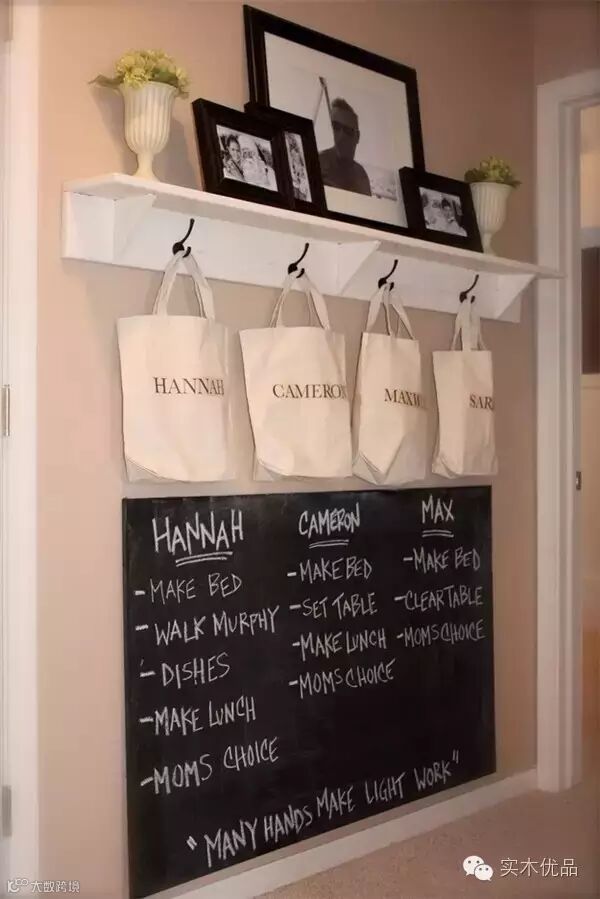 HANNAH
CAMERON
MAXW
SAR
HANNAH
- MAKE BED
- WALK MURPHY
- DISHES
- MAKE LUNCH
- MOMS CHOICE
CAMERON
- MAKE BED
- SET TABLE
- MAKE LUNCH
- MOMS CHOICE
MAX
- MAKE BED
- CLEAR TABLE
- MOMS CHOICE
"MANY HANDS MAKE LIGHT WORK"
实木优品
大数跨境